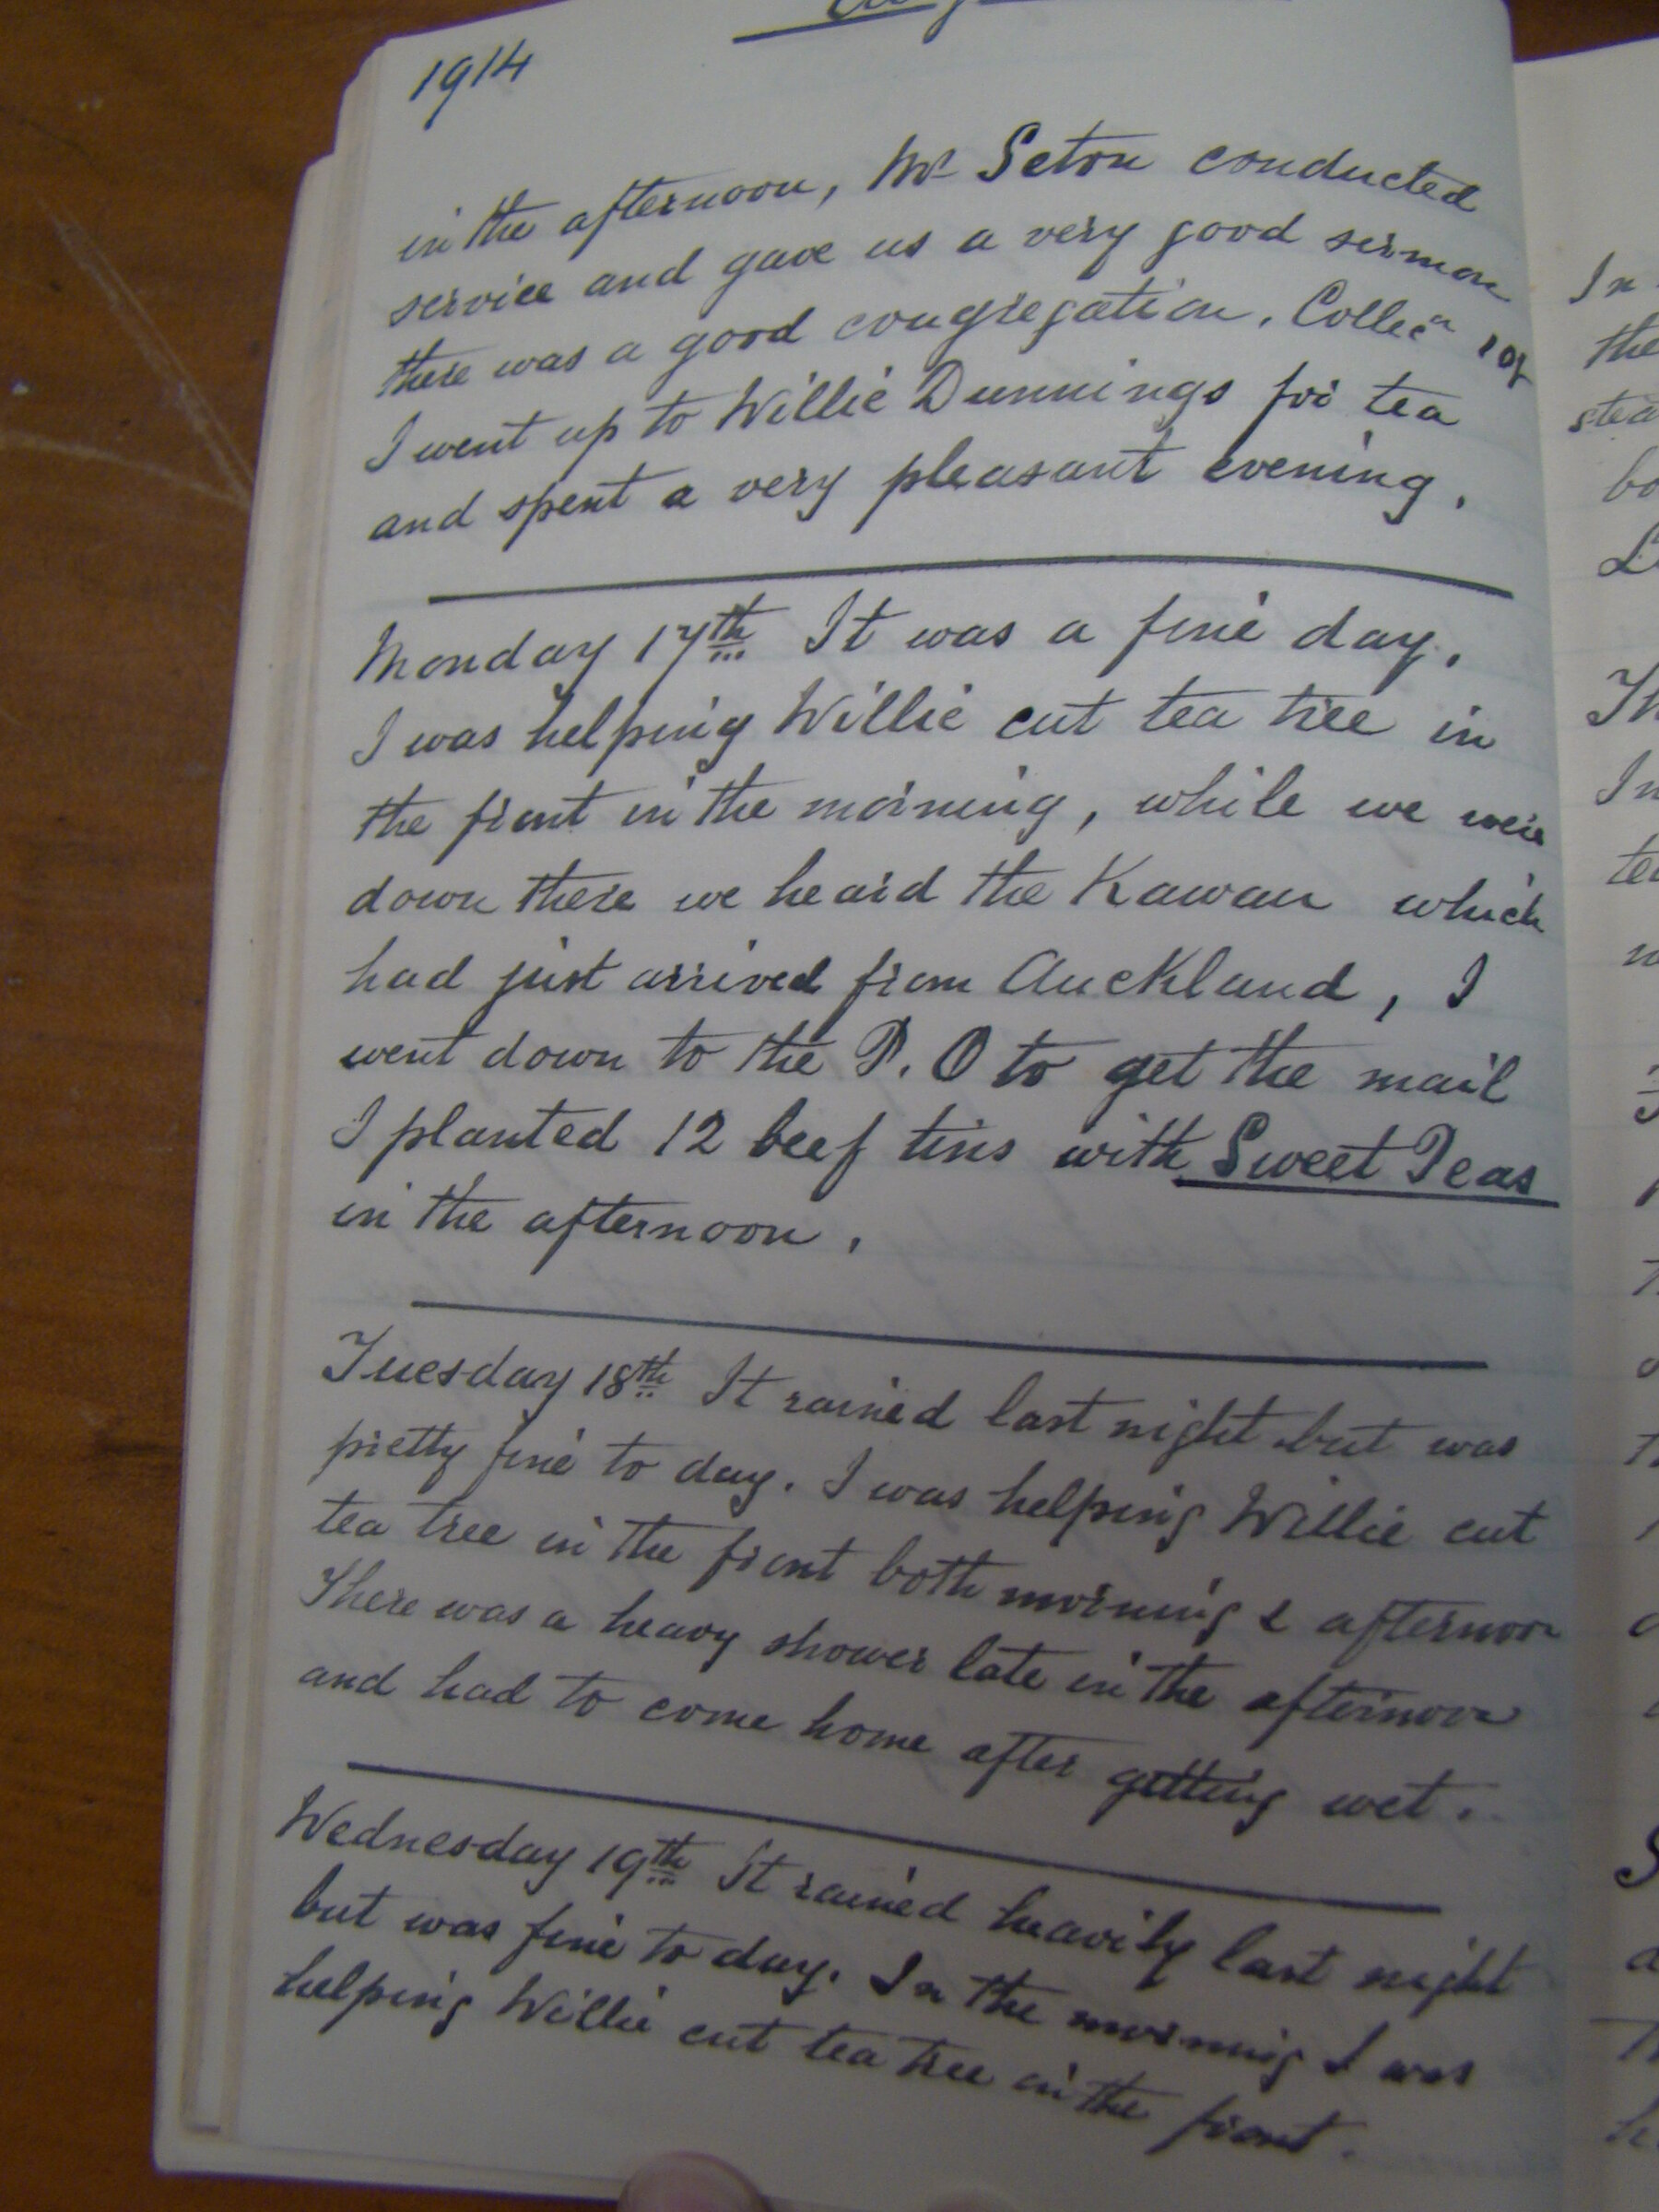 1914
in the afternoon, Mr Seton conducted
service and gave us a very good sermon
there was a good congregation. Collecn
I went up to Willie Dunnings for tea
and spent a very pleasant evening.
Monday 17th It was a fine day.
I was helping Willie cut tea tree in
the front in the morning, while we were
down there we heard the Kawau which
had just arrived from Auckland, I
went down to the P.O to get the mail
I planted 12 beef tins with Sweet Peas
in the afternoon.
Tuesday 18th It rained last night but was
pretty fine to day. I was helping Willie cut
tea tree in the front both morning & afternoon
There was a heavy shower late in the afternoon
and had to come home after getting wet.
Wednesday 19th It rained heavily last night
but was fine to day. In the morning I was
helping Willie cut tea tree in the front.
In
the